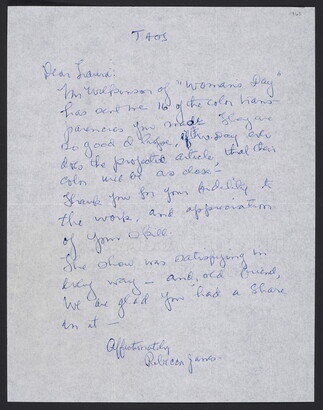 1963
TAOS
Dear Laura:
Mr Wilkinson of "Womans Day"
has sent me 16 of the color trans-
parencies you made. They are
so good I hope, if W. Day ever
does the projected article, that their
color will be as close -
Thank you for your fidelity to
the work, and appreciation
of your skill.
The show was satisfying in
every way - and, old friend,
we are glad you had a share
in it -
Affectionately
Rebecca James -